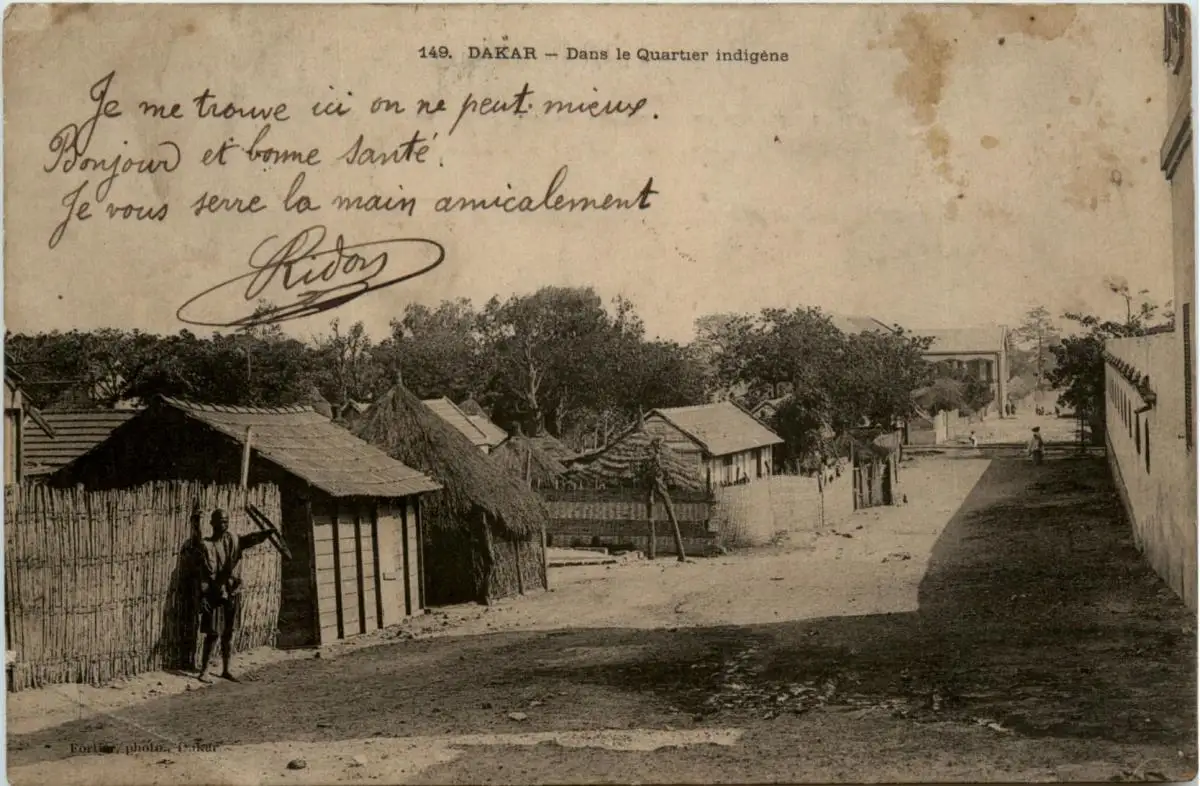 149. DAKAR — Dans le Quartier indigène
Je me trouve ici on ne peut mieux.
Bonjour et bonne santé.
Je vous serre la main amicalement
Fortier, photo., Dakar